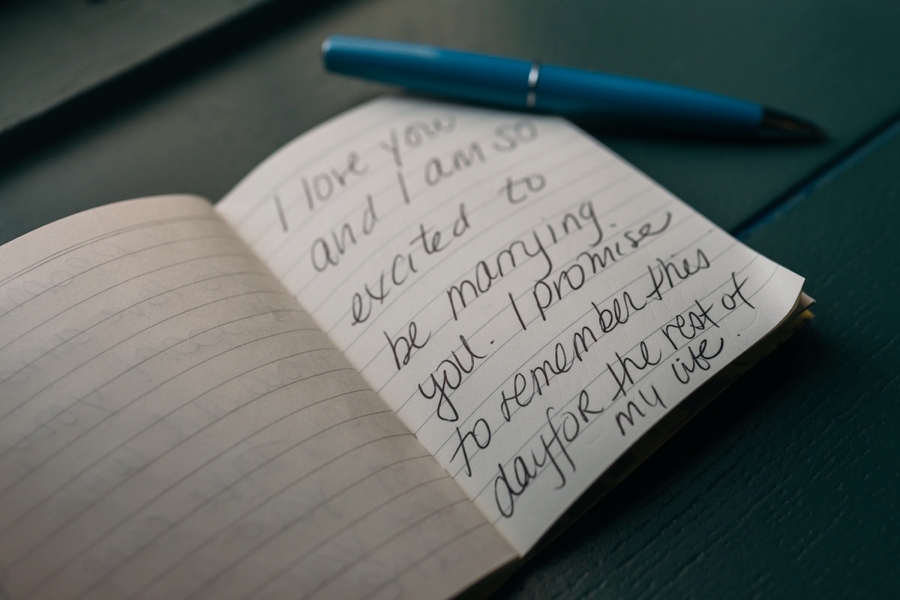 I love you
and I am so
excited to
be marrying
you. I promise
to remember this
day for the rest of
my life.